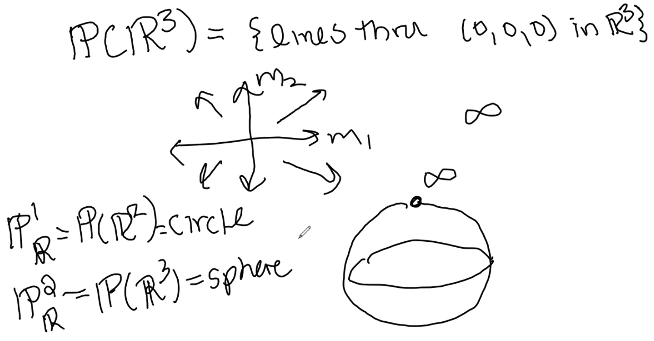 ℙ(ℝ³) = {lines thru (0,0,0) in ℝ³}
m₂
∞
m₁
∞
ℙ¹_ℝ = ℙ(ℝ²) = circle
ℙ²_ℝ = ℙ(ℝ³) = sphere